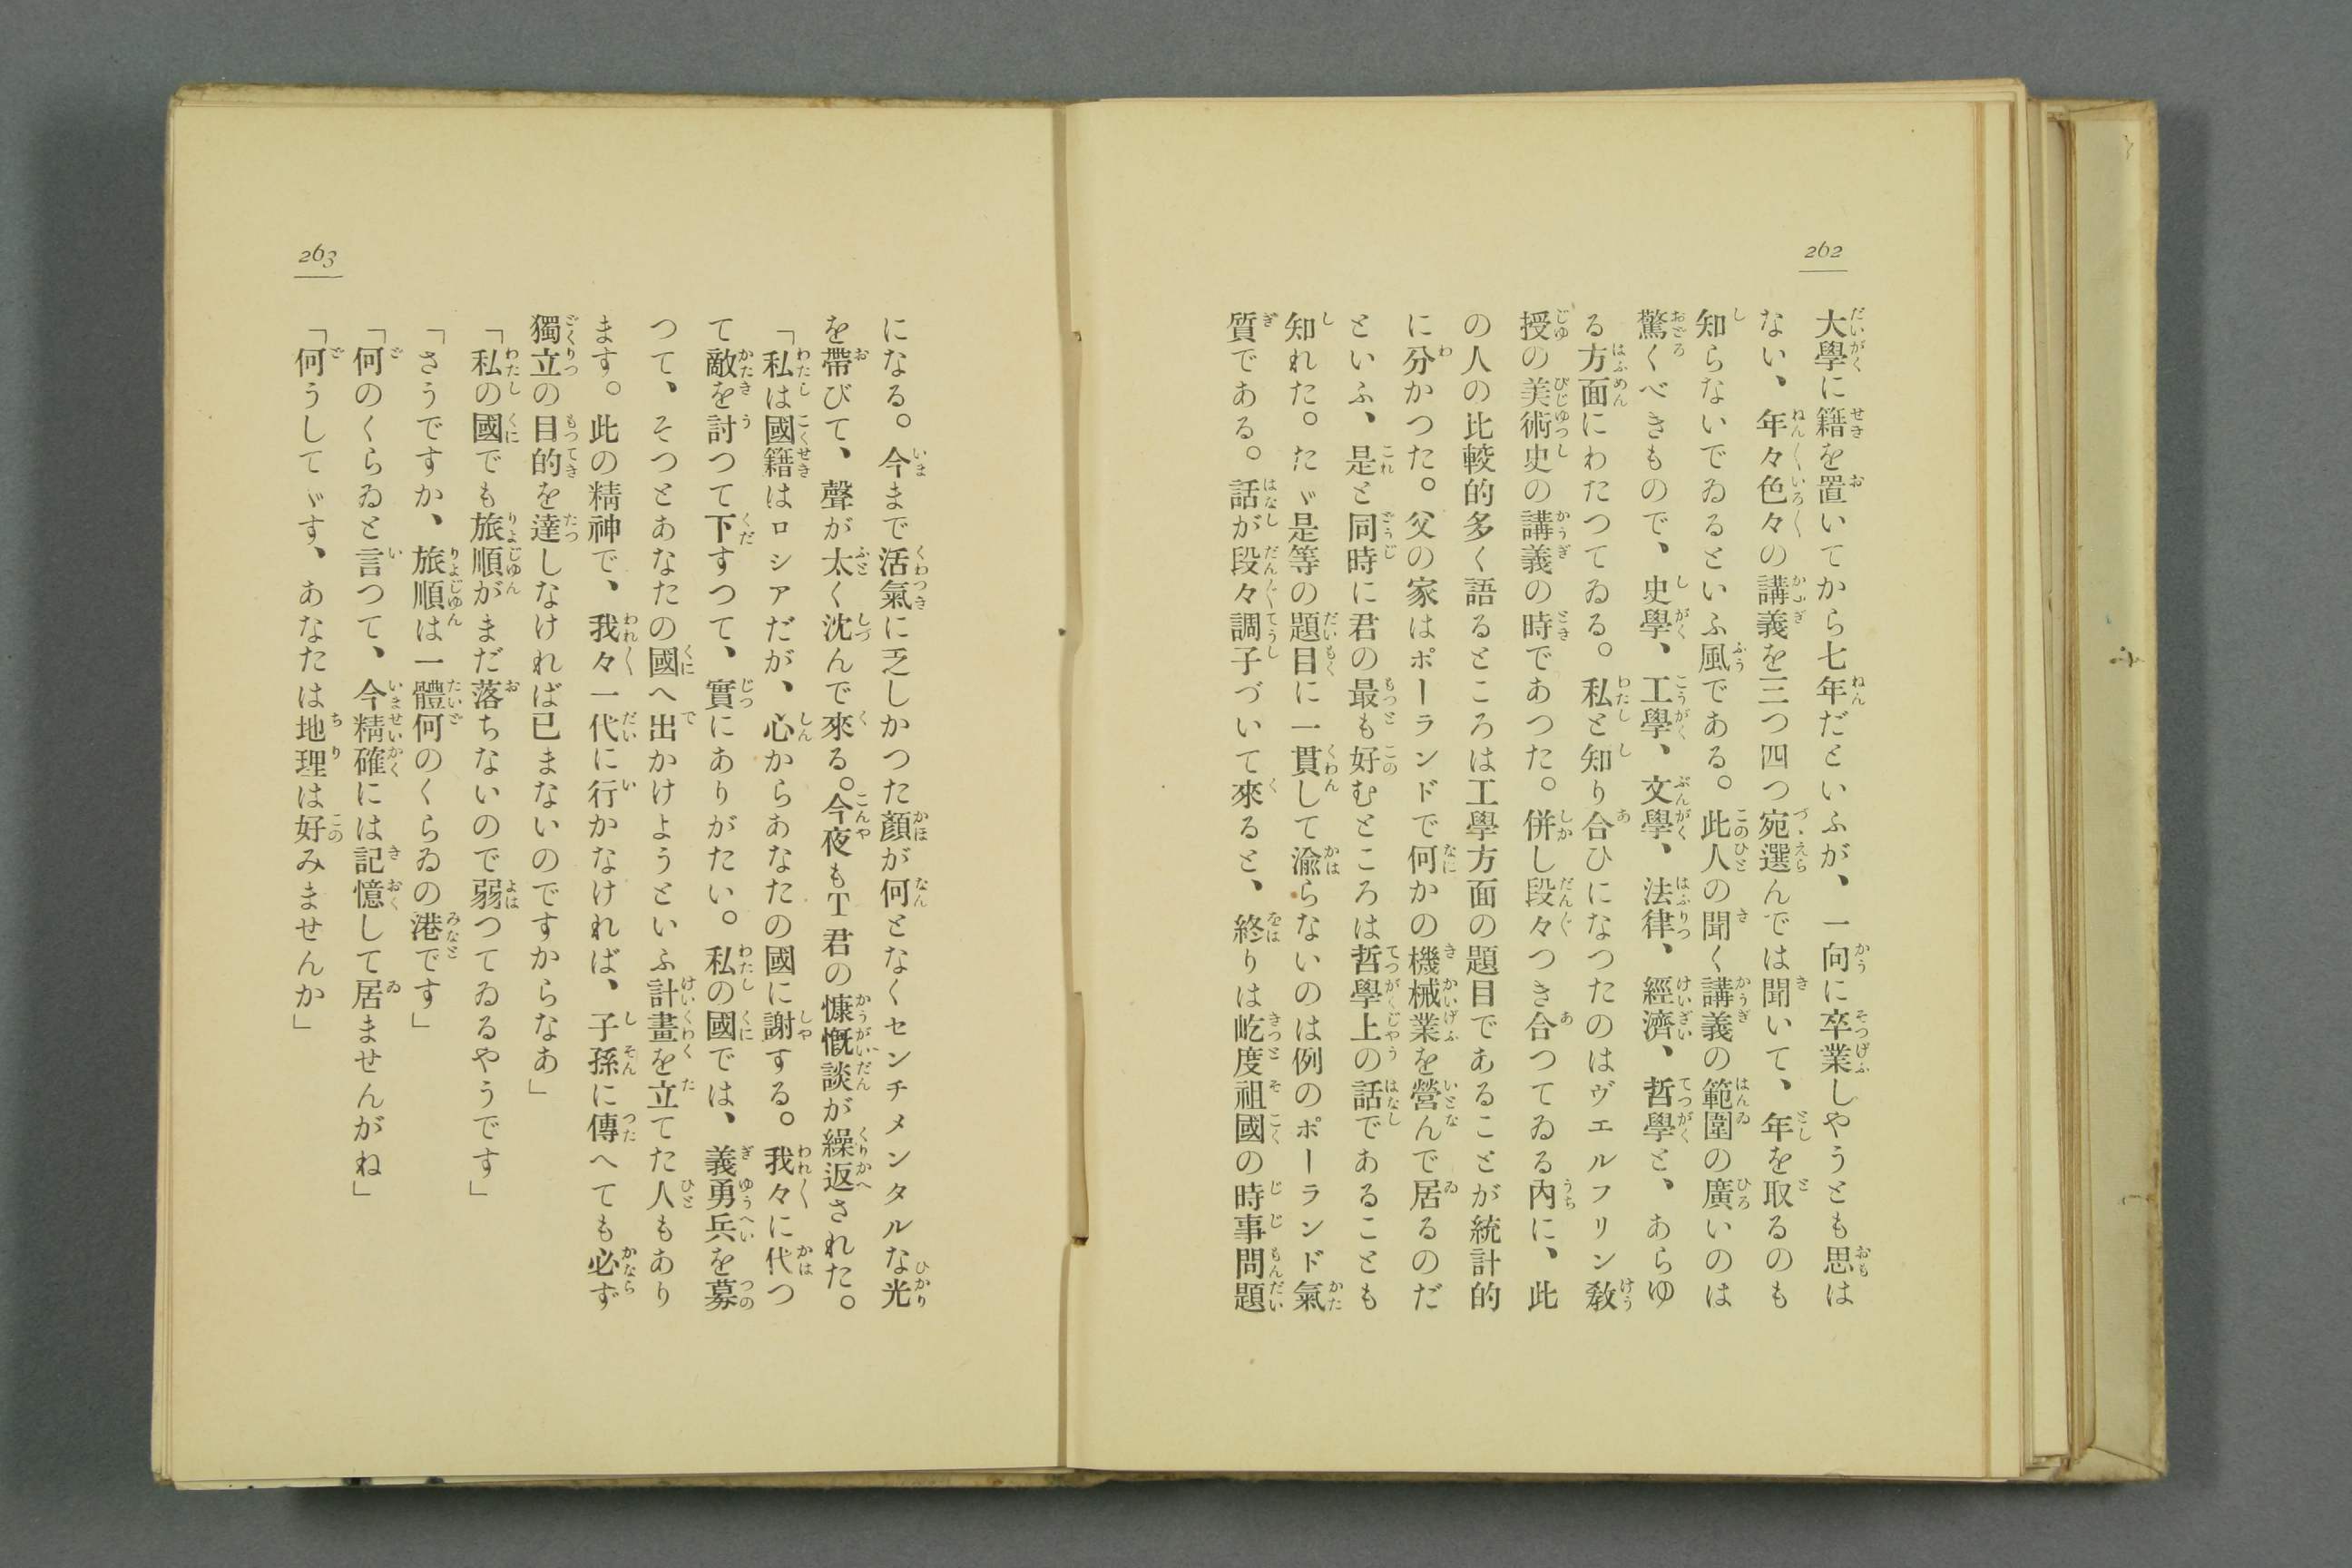 262
大學に籍を置いてから七年だといふが、一向に卒業しやうとも思は
ない、年々色々の講義を三つ四つ宛選んでは聞いて、年を取るのも
知らないでゐるといふ風である。此人の聞く講義の範圍の廣いのは
驚くべきもので、史學、工學、文學、法律、經濟、哲學と、あらゆ
る方面にわたつてゐる。私と知り合ひになつたのはヴエルフリン敎
授の美術史の講義の時であつた。併し段々つき合つてゐる內に、此
の人の比較的多く語るところは工學方面の題目であることが統計的
に分かつた。父の家はポーランドで何かの機械業を營んで居るのだ
といふ、是と同時に君の最も好むところは哲學上の話であることも
知れた。たゞ是等の題目に一貫して渝らないのは例のポーランド氣
質である。話が段々調子づいて來ると、終りは屹度祖國の時事問題
263
になる。今まで活氣に乏しかつた顏が何となくセンチメンタルな光
を帶びて、聲が太く沈んで來る。今夜もT君の慷慨談が繰返された。
「私は國籍はロシアだが、心からあなたの國に謝する。我々に代つ
て敵を討つて下すつて、實にありがたい。私の國では、義勇兵を募
つて、そつとあなたの國へ出かけようといふ計畫を立てた人もあり
ます。此の精神で、我々一代に行かなければ、子孫に傳へても必ず
獨立の目的を達しなければ已まないのですからなあ」
「私の國でも旅順がまだ落ちないので弱つてゐるやうです」
「さうですか、旅順は一體何のくらゐの港です」
「何のくらゐと言つて、今精確には記憶して居ませんがね」
「何うしてゞす、あなたは地理は好みませんか」